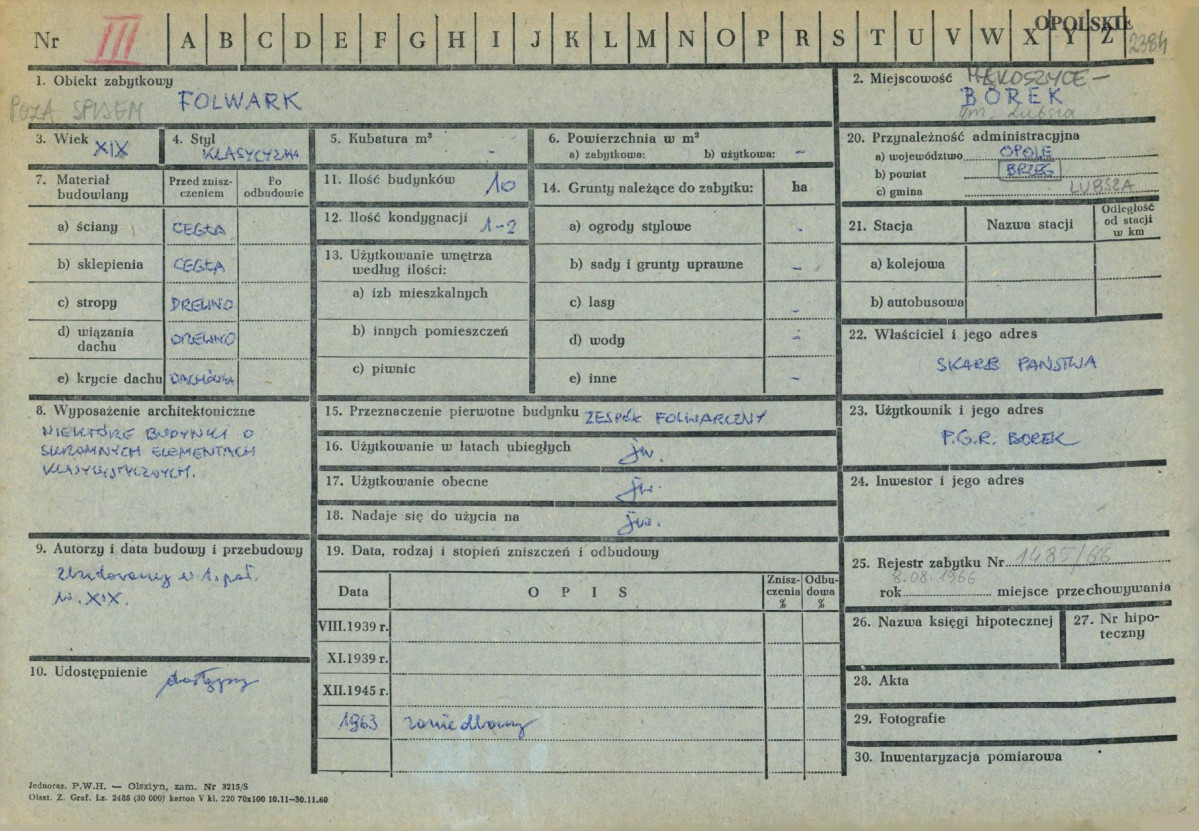 Nr III A B C D E F G H I J K L M N O P R S T U V W X Y Z
OPOLSKIE
2384
1. Obiekt zabytkowy
FOLWARK
POZA SPISEM
2. Miejscowość MĄKOSZYCE –
BOREK
gm. Lubsza
3. Wiek
XIX
4. Styl
KLASYCYZM
5. Kubatura m³
-
6. Powierzchnia w m²
a) zabytkowa: b) użytkowa: -
7. Materiał budowlany
Przed zniszczeniem
Po odbudowie
a) ściany CEGŁA
b) sklepienia CEGŁA
c) stropy DREWNO
d) wiązania dachu DREWNO
e) krycie dachu DACHÓWKA
8. Wyposażenie architektoniczne
NIEKTÓRE BUDYNKI O
SKROMNYCH ELEMENTACH
KLASYCYSTYCZNYCH.
9. Autorzy i data budowy i przebudowy
Zbudowany w 1. poł.
w. XIX.
10. Udostępnienie dostępny
11. Ilość budynków 10
12. Ilość kondygnacji 1-2
13. Użytkowanie wnętrza
według ilości:
a) izb mieszkalnych
b) innych pomieszczeń
c) piwnic
14. Grunty należące do zabytku: ha
a) ogrody stylowe -
b) sady i grunty uprawne -
c) lasy -
d) wody -
e) inne -
15. Przeznaczenie pierwotne budynku ZESPÓŁ FOLWARCZNY
16. Użytkowanie w latach ubiegłych jw.
17. Użytkowanie obecne jw.
18. Nadaje się do użycia na jw.
19. Data, rodzaj i stopień zniszczeń i odbudowy
Data OPIS Zniszczenia % Odbudowa %
VIII.1939 r.
XI.1939 r.
XII.1945 r.
1963 zaniedbany
20. Przynależność administracyjna
a) województwo OPOLE
b) powiat BRZEG
c) gmina LUBSZA
21. Stacja Nazwa stacji Odległość od stacji w km
a) kolejowa
b) autobusowa
22. Właściciel i jego adres
SKARB PAŃSTWA
23. Użytkownik i jego adres
P.G.R. BOREK
24. Inwestor i jego adres
25. Rejestr zabytku Nr 1485/66
8.08.1966
rok miejsce przechowywania
26. Nazwa księgi hipotecznej
27. Nr hipoteczny
28. Akta
29. Fotografie
30. Inwentaryzacja pomiarowa
Jednoraz. P.W.H. — Olsztyn, zam. Nr 3215/S
Olszt. Z. Graf. Lz. 2486 (30 000) karton V kl. 220 70x100 10.11—30.11.60